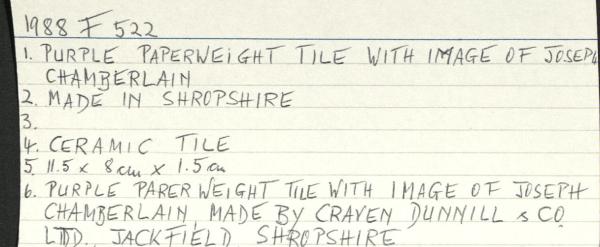 1988 F 522
1. PURPLE PAPERWEIGHT TILE WITH IMAGE OF JOSEPH
CHAMBERLAIN
2. MADE IN SHROPSHIRE
3.
4. CERAMIC TILE
5. 11.5 x 8cm x 1.5cm
6. PURPLE PARER WEIGHT TILE WITH IMAGE OF JOSEPH
CHAMBERLAIN, MADE BY CRAVEN DUNNILL & CO
LTD., JACKFIELD SHROPSHIRE